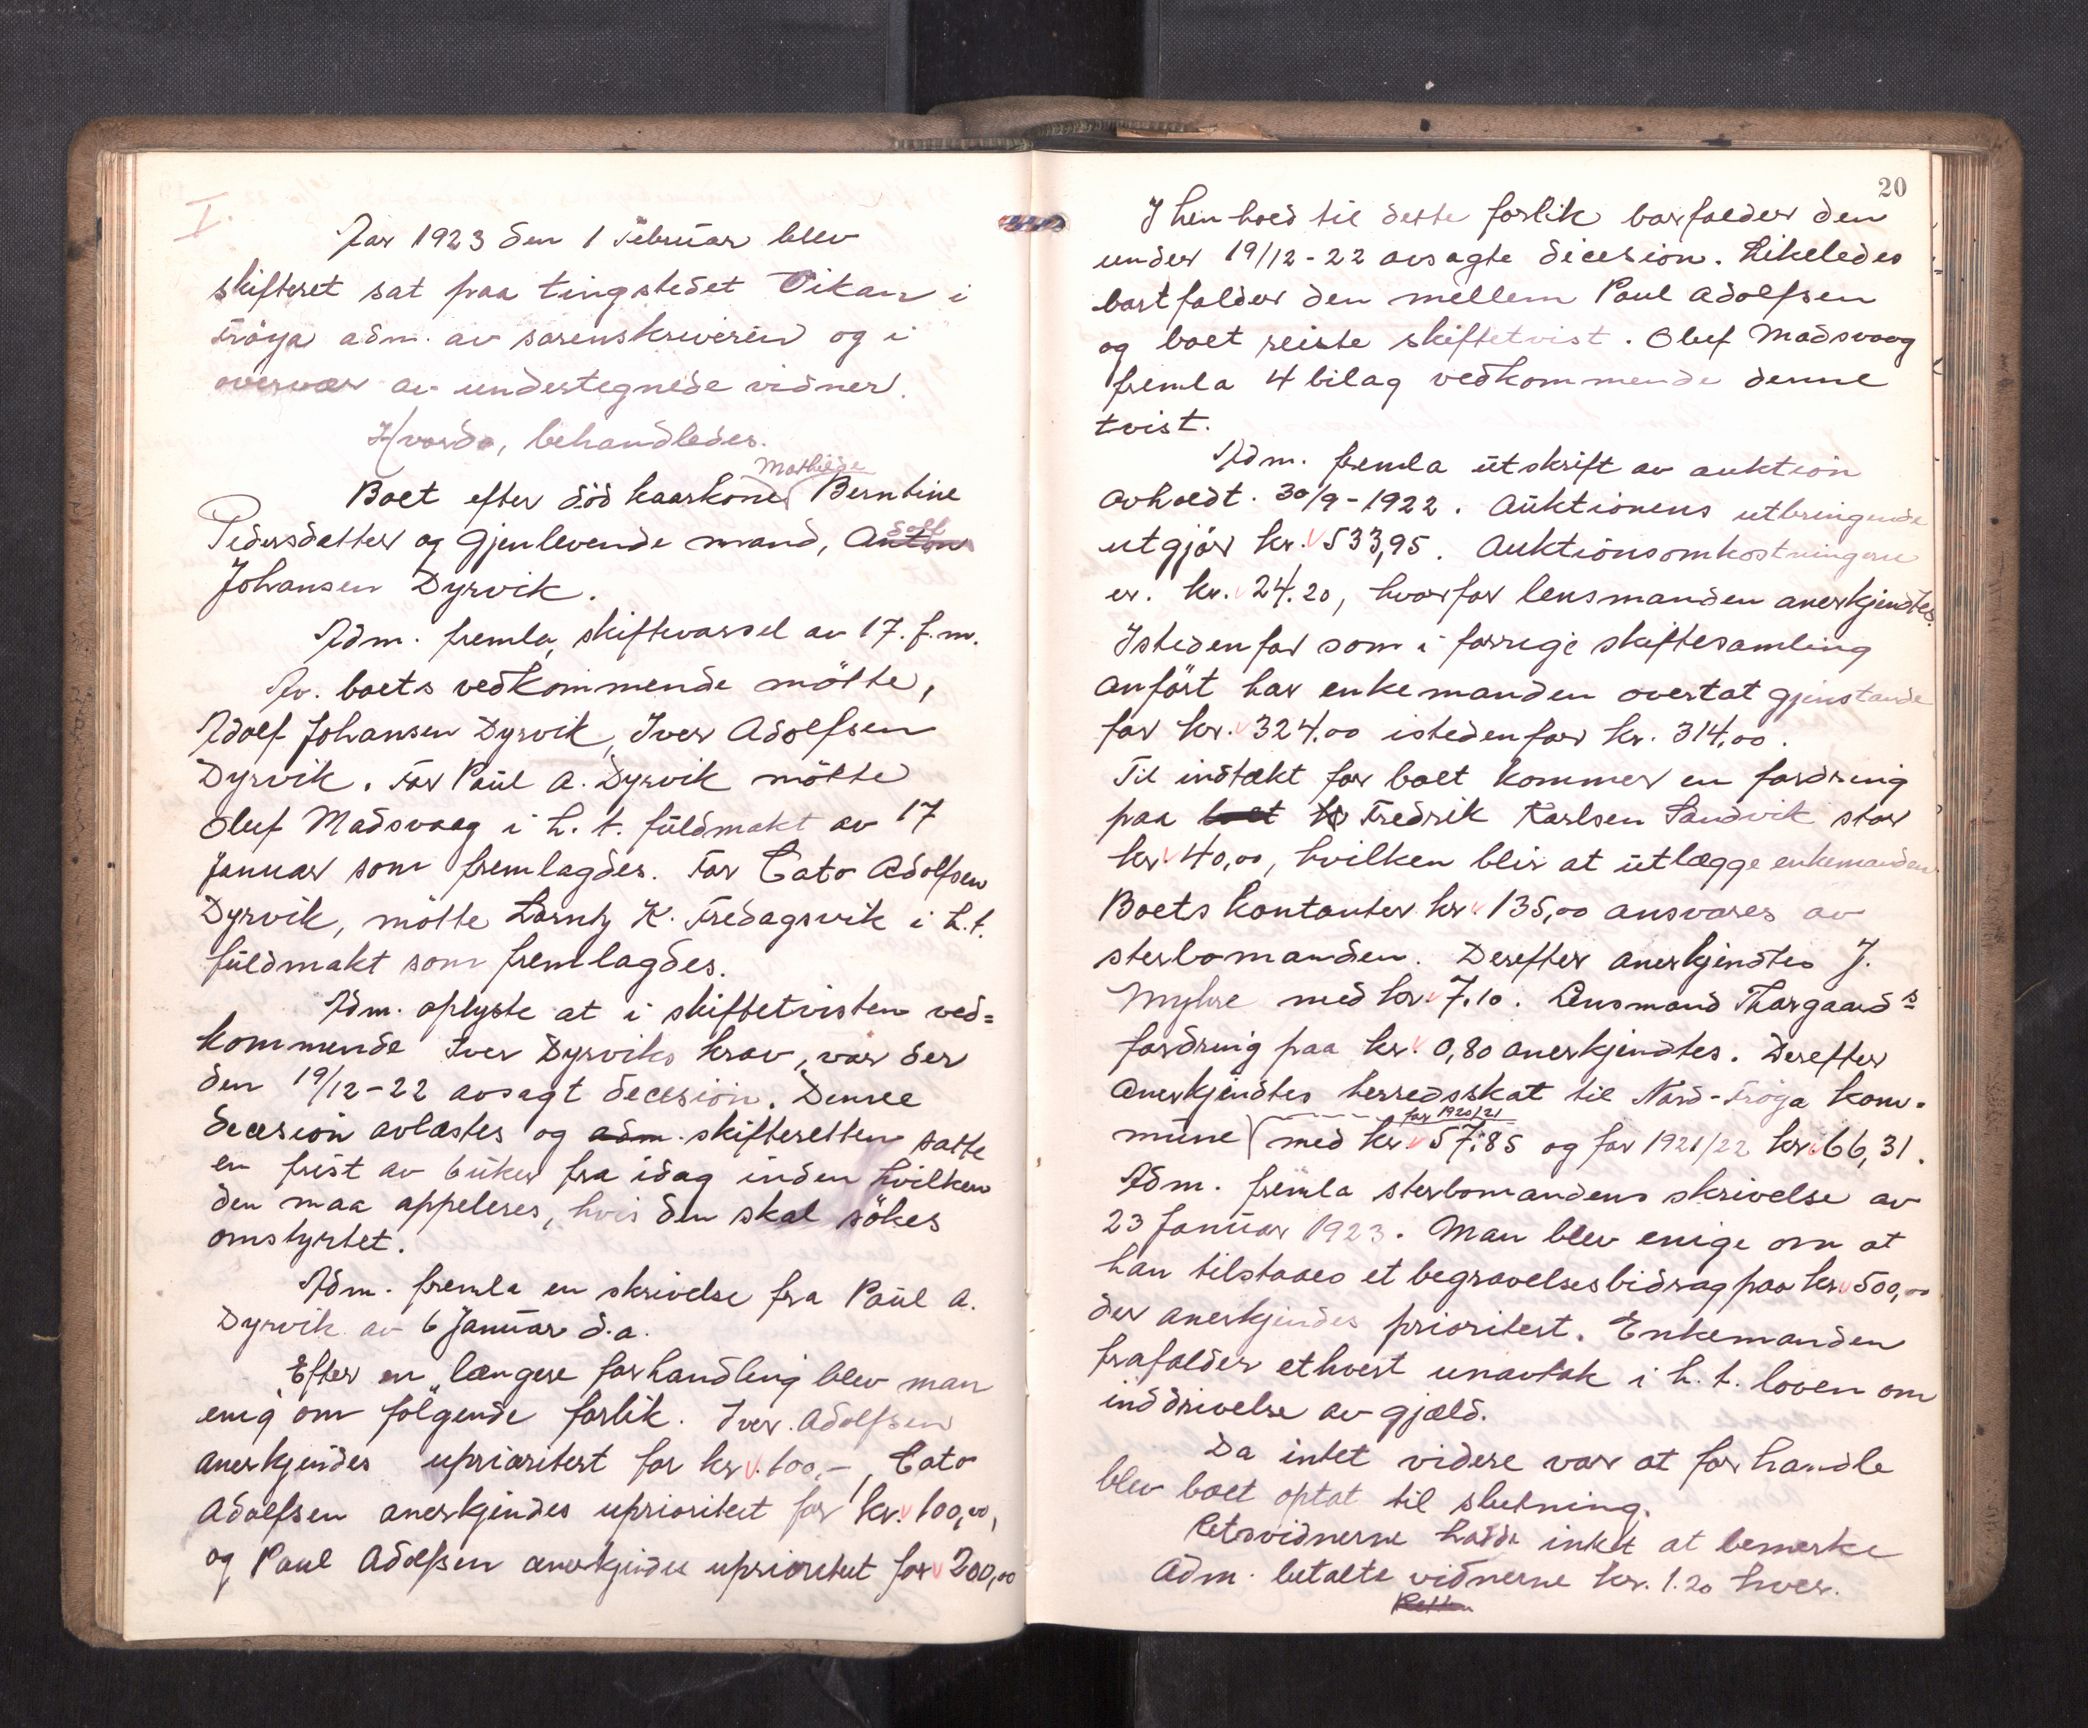 I.
Aar 1923 den 1 Februar blev
skifteret sat paa tingstedet Vikan i
Fröya adm. av sorenskriveren og i
overvær av undertegnede vidner.
Hvorda, behandledes.
Mathilde
Boet efter död kaarkone Berntine
Pedersdatter og gjenlevende mand, Anton dolf
Johansen Dyrvik.
Adm. fremla, skiftevarsel av 17. f.m.
Av. boets vedkommende mötte,
Adolf Johansen Dyrvik, Iver Adolfsen
Dyrvik. For Paul A. Dyrvik mötte
Oluf Madsvaag i h.t. fuldmakt av 17
januar som fremlagdes. For Cato Adolfsen
Dyrvik, mötte Lorntz K. Fredagsvik i h.t.
fuldmakt som fremlagdes.
Adm. oplyste at i skiftetvisten ved=
kommende Iver Dyrviks krav, var der
den 19/12-22 avsagt decesion. Denne
decesion avlæstes og adm. skifteretten satte
en frist av 6 uker fra idag inden hvilken
den maa appeleres, hvis den skal sökes
omstyrtet.
Adm. fremla en skrivelse fra Paul A.
Dyrvik av 6 januar d.a.
Efter en længere forhandling blev man
enig om fölgende forlik. Iver Adolfsen
anerkjendes uprioritert for kr. 100,-, Cato
Adolfsen anerkjendes uprioritert for kr. 100,00,
og Paul Adolfsen anerkjendes uprioritert for 200,00
20
I henhold til dette forlik borfalder den
under 19/12-22 avsagte dicesion. Likeledes
bortfalder den mellem Paul Adolfsen
og boet reiste skiftetvist. Oluf Madsvaag
fremla 4 bilag vedkommende denne
tvist.
Adm. fremla utskrift av auktion
avholdt. 30/9-1922. Auktionens utbringende
utgjör kr. 533,95. Auktionsomkostningene
er. kr. 24.20, hvorfor lensmanden anerkjendtes.
Istedenfor som i forrige skiftesamling
anfört har enkemanden overtat gjenstande
for kr. 324.00 istedenfor kr. 314,00.
Til indtækt for boet kommer en fordring
paa boet Fredrik Karlsen Sandvik stor
kr 40,00, hvilken blir at utlægge enkemanden
Boets kontanter kr. 135,00 ansvares av
sterbomanden. Derefter anerkjendtes J.
Myhre med kr. 7.10. Lensmand Thorgaards
fordring paa kr. 0,80 anerkjendtes. Derefter
anerkjendtes herredsskat til Nord-Fröya kom-
for 1920/21
mune med kr. 57.85 og for 1921/22 kr. 66,31.
Adm. fremla sterbomandens skrivelse av
23 januar 1923. Man blev enige om at
han tilstaaes et begravelsesbidrag paa kr. 500,00
der anerkjendes prioritert. Enkemanden
frafalder ethvert unavtak i h.t. loven om
inddrivelse av gjæld.
Da intet videre var at forhandle
blev boet optat til slutning.
Retsvidnerne hadde intet at bemerke
Adm. betalte vidnerne kr. 1.20 hver.